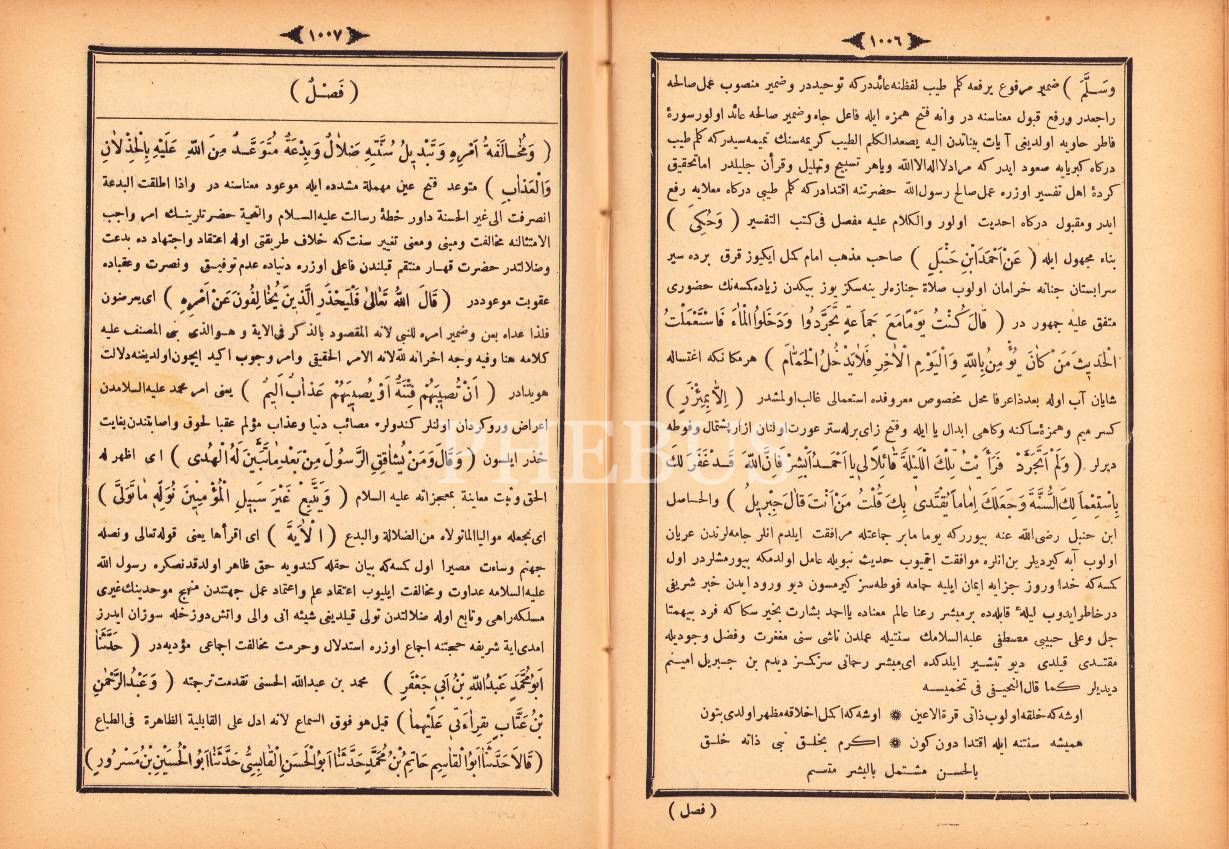 ١٠٠٦
وَسَلَّمَ ) ضمیر مرفوع یرفعه کلم طیب لفظنه عائددر که توحیددر وضمیر منصوب عمل صالحه
راجعدر ورفع قبول معناسنه در وانه فتح همزه ایله فاعل جاه وضمیر صالحه عائد اولور سورۀ
فاطر حاویه اولدیغی آیات بیناتدن الیه یصعدالکلم الطیب کریمه‌سنك تمیمه‌سیدر که کلم طیب
درکاه کبریایه صعود ایدر که مراد لااله الاالله ویاهر تسبیح وتهلیل وقرأن جلیلدر اماتحقیق
کردۀ اهل تفسیر اوزره عمل صالح رسول‌الله حضرتنه اقتدادر که کلم طیبی درکاه معلایه رفع
ایدر ومقبول درکاه احدیت اولور والکلام علیه مفصل فی‌کتب التفسیر ( وَحُكِیَ )
بناء مجهول ایله ( عَنْ اَحْمَدَ ابْنِ حَنْبَلٍ ) صاحب مذهب امام کمل ایکیوز قرق برده سیر
سرابستان جنانه خرامان اولوب صلاة جنازه‌لرینه سکز یوز بیکدن زیاده کسه‌نك حضوری
متفق علیه جمهور در ( قَالَ كُنْتُ يَوْمًا مَعَ جَمَاعَةٍ تَجَرَّدُوا وَدَخَلُوا الْمَاءَ فَاسْتَعْمَلْتُ
الْحَدِيثَ مَنْ كَانَ يُؤْمِنُ بِاللهِ وَالْيَوْمِ الْاٰخِرِ فَلَا يَدْخُلُ الْحَمَّامَ ) هرمکا نکه اغتساله
شایان آب اوله بعدذا عرفا محل مخصوص معروفده استعمالی غالب اولمشدر ( اِلَّا بِمِئْزَرٍ )
کسر میم وهمزۀ ساکنه وکاهی ابدال یا ایله وفتح زای برله ستر عورت اولنان ازار پشتمال وفوطه
دیرلر ( وَلَمْ اَتَجَرَّدْ فَرَأَيْتُ تِلْكَ اللَّيْلَةَ قَائِلًا لِی يَا اَحْمَدُ اَبْشِرْ فَاِنَّ اللهَ قَدْ غَفَرَ لَكَ
بِاسْتِعْمَالِكَ السُّنَّةَ وَجَعَلَكَ اِمَامًا يُقْتَدٰى بِكَ قُلْتُ مَنْ اَنْتَ قَالَ جِبْرِيلُ ) والحاصل
ابن حنبل رضی‌الله عنه بیوررکه یوما مابر جماعتله مرافقت ایلدم انلر جامه‌لرندن عریان
اولوب آبه کیردیلر بن‌انلره موافقت ایتمیوب حدیث نبویله عامل اولدمکه بیورمشلردر اول
کسه‌که خدا وروز جزایه ایمان ایلیه حمامه فوطه‌سز کیرمسون دیو ورود ایدن خبر شریفی
درخاطر ایدوب لیلۀ قابله‌ده برمبشر رعنا عالم معناده یااحمد بشارت بخیر سکاکه فرد بیهمتا
جل وعلی حبیبی مصطفی علیه‌السلامك سنتیله عملدن ناشی سنی مغفرت وفضل وجودیله
مقتدی قیلدی دیو تبشیر ایلدکده ای‌مبشر رحمانی سزکمسز دیدم بن جبریل امینم
دیدیلر کما قال النحیفی فی تخمیسه
اوشه‌که خلقه اولوب ذاتی قرة الاعین ❋ اوشه‌که اکمل اخلاقه مظهر اولدی بتون
همیشه سنتنه ایله اقتدا دون کون ❋ اکرم بخلق نبی ذانه خلق
بالحسن مشتمل بالبشر متسم
( فصل )
١٠٠٧
( فَصْلٌ )
( وَمُخَالَفَةُ اَمْرِهِ وَتَبْدِيلُ سُنَّتِهِ ضَلَالٌ وَبِدْعَةٌ مُتَوَعَّدٌ مِنَ اللهِ عَلَيْهِ بِالْخِذْلَانِ
وَالْعَذَابِ ) متوعد فتح عین مهملة مشدده ایله موعود معناسنه در واذا اطلقت البدعة
انصرفت الی‌غیر الحسنة داور خطۀ رسالت علیه‌السلام والتحیة حضرتلرینك امر واجب
الامتثالنه مخالفت ومبنی ومعنی تغییر سنت‌که خلاف طریقتی اوله اعتقاد واجتهاد ده بدعت
وضلالتدر حضرت قهار منتقم قبلندن فاعلی اوزره دنیاده عدم توفیق ونصرت وعقباده
عقوبت موعوددر ( قَالَ اللهُ تَعَالٰى فَلْيَحْذَرِ الَّذِينَ يُخَالِفُونَ عَنْ اَمْرِهِ ) ای‌یعرضون
فلذا عداه بعن وضمیر امره للنبی لانه المقصود بالذکر فی‌الایة و هوالذی بنی المصنف علیه
کلامه هنا وفیه وجه اخرانه لله لانه الامر الحقیقی وامر وجوب اکید ایچون اولدیغنه دلالت
هویدادر ( اَنْ تُصِيبَهُمْ فِتْنَةٌ اَوْ يُصِيبَهُمْ عَذَابٌ اَلِيمٌ ) یعنی امر محمد علیه‌السلامدن
اعراض وروکردان اولنلر کندولره مصائب دنیا وعذاب مؤلم عقبا لحوق واصابتندن بغایت
حذر ایلسون ( وَقَالَ وَمَنْ يُشَاقِقِ الرَّسُولَ مِنْ بَعْدِ مَا تَبَيَّنَ لَهُ الْهُدٰى ) ای اظهر له
الحق وثبت معاینة بمعجزاته علیه السلام ( وَيَتَّبِعْ غَيْرَ سَبِيلِ الْمُؤْمِنِينَ نُوَلِّهِ مَا تَوَلّٰى )
ای‌نجعله موالیالماتولاه من‌الضلالة والبدع ( اَلْاٰيَةَ ) ای اقرأها یعنی قوله‌تعالی ونصله
جهنم وساءت مصیرا اول کسه‌که بیان حقله کندویه حق ظاهر اولدقدنصکره رسول الله
علیه‌السلامه عداوت ومخالفت ایلیوب اعتقاد علم واعتماد عمل جهتندن منهج موحدینك‌غیری
مسلکه‌راهی وتابع اوله ضلالتدن تولی قیلدیغی شیئه انی والی واتش‌دوزخله سوزان ایدرز
امدی‌ایة شریفه حجتنه اجماع اوزره استدلال وحرمت مخالفت اجماعی مؤدیه‌در ( حَدَّثَنَا
اَبُو مُحَمَّدٍ عَبْدُ اللهِ بْنُ اَبِی جَعْفَرٍ ) محمد بن عبدالله الحسنی تقدمت ترجمته ( وَعَبْدُ الرَّحْمٰنِ
بْنُ عَتَّابٍ بِقِرَاءَتِی عَلَيْهِمَا ) قیل‌هو فوق السماع لانه ادل علی القابلیة الظاهرة فی‌الطباع
( قَالَا حَدَّثَنَا اَبُو الْقَاسِمِ حَاتِمُ بْنُ مُحَمَّدٍ حَدَّثَنَا اَبُو الْحَسَنِ الْقَابِسِیُّ حَدَّثَنَا اَبُو الْحُسَيْنِ بْنُ مَسْرُورٍ )
PHEBUS